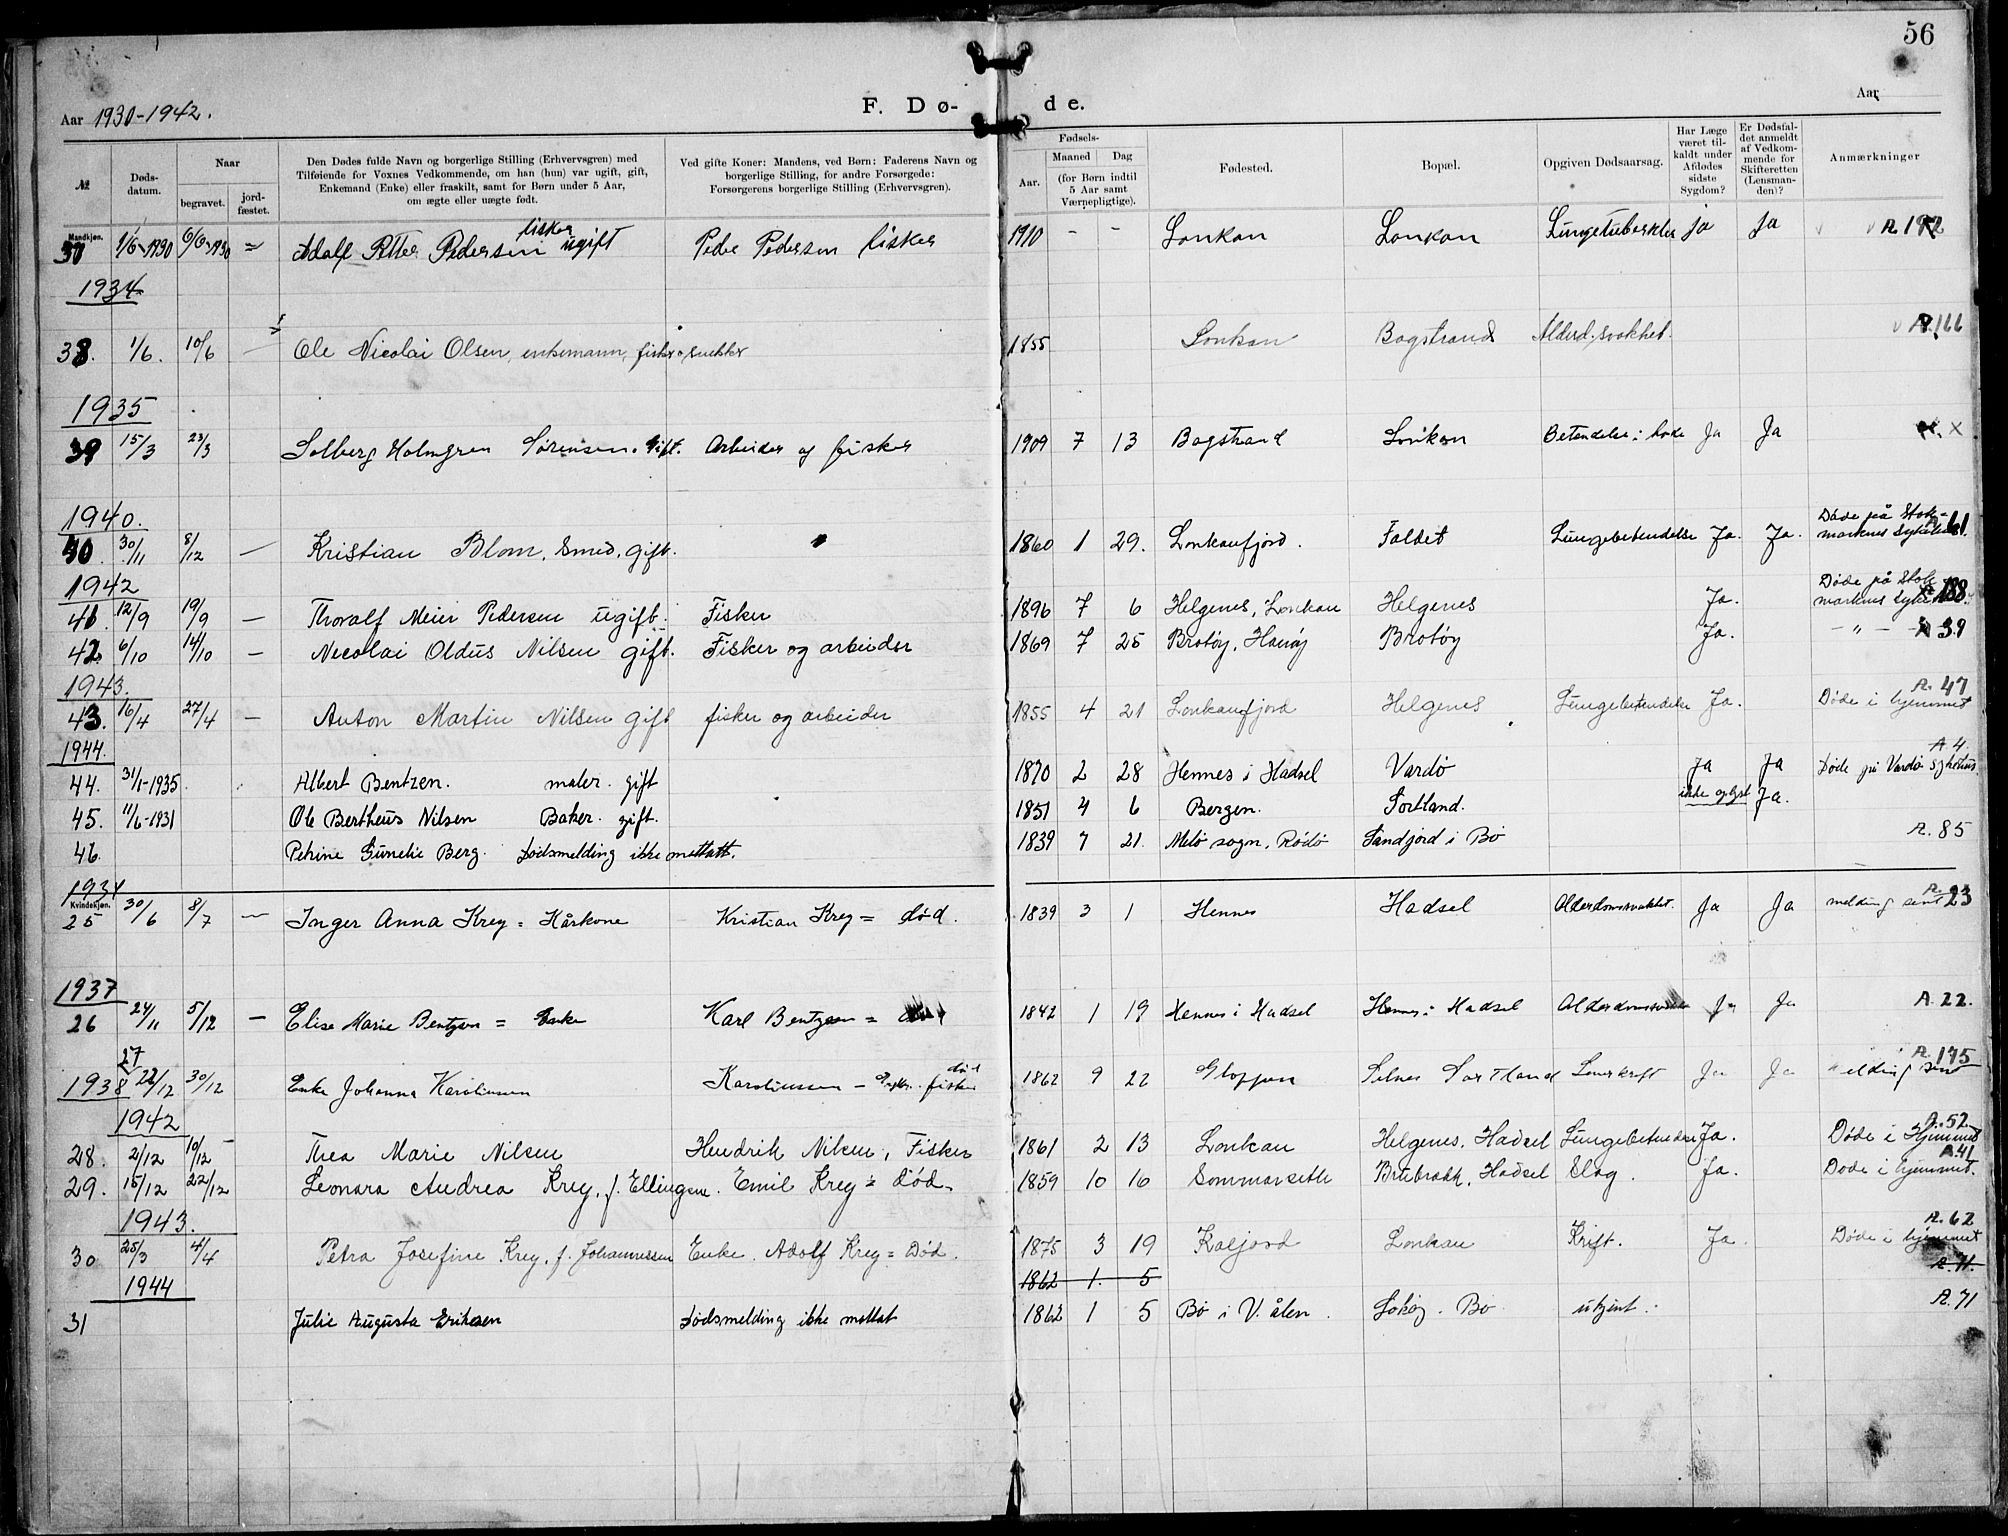 56
Aar 1930-1942.
F. Dø-
de.
Aar
№
Døds-
datum.
Naar
begravet.
jord-
fæstet.
Den Dødes fulde Navn og borgerlige Stilling (Erhvervsgren) med
Tilføiende for Voxnes Vedkommende, om han (hun) var ugift, gift,
Enkemand (Enke) eller fraskilt, samt for Børn under 5 Aar,
om ægte eller uægte født.
Ved gifte Koner: Mandens, ved Børn: Faderens Navn og
borgerlige Stilling, for andre Forsørgede:
Forsørgerens borgerlige Stilling (Erhvervsgren).
Fødsels-
Aar.
Maaned
Dag
(for Børn indtil
5 Aar samt
Værnepligtige).
Fødested.
Bopæl.
Opgiven Dødsaarsag.
Har Læge
været til-
kaldt under
Afdødes
sidste
Sygdom?
Er Dødsfal-
det anmeldt
af Vedkom-
mende for
Skifteretten
(Lensman-
den)?
Anmærkninger
Mandkjøn.
fisker
1/6 1930 6/6 1930 Adolf Petter Pedersen ugift Peder Pedersen fisker 1910 - - Lonkan Lonkan Lungetuberkler ja Ja
1934
38. 1/6. 10/6 — Ole Nicolai Olsen, enkemann, fisker 1855 Lonkan Bogstrand Alderd.svakhet. A.166
1935
39 15/3 23/3 Solberg Holmgren Sørensen. Gift. Arbeider og fisker 1909 7 13 Bogstrand Lonkan Betendelse i hode Ja Ja X
1940.
Døde på Stok-
40. 30/11 8/12 — Kristian Blom, Smed, gift. 1860 1 29. Lonkanfjord. Faldet Lungebetendelse Ja. Ja. marknes 61
1942
Døde på Stok
41. 12/9 19/9 — Thoralf Meier Pedersen ugift. Fisker 1896 7 6 Helgenes, Lonkan Helgenes Ja. marknes 188
42. 6/10 14/10 — Nicolai Oldus Nilsen gift. Fisker og arbeider 1869 7 25 Brotøy, Hanøy Brotøy Ja. — " — A 39
1943.
A. 47
43. 16/4 27/4 — Anton Martin Nilsen gift fisker og arbeider 1855 4 21 Lonkanfjord Helgenes Lungebetendelse Ja. Døde i hjemmet
1944.
A 4.
44. 31/1-1935 Albert Bentzen. maler. gift 1870 2 28 Hennes i Hadsel Vardø Ja Ja Døde på Vardø sykehus
45. 11/6-1931 Ole Bertheus Nilsen Baker. gift. 1851 4 6 Bergen. Sortland. ikke oplyst Ja.
46. Petrine Gunelie Berg. Dødsmelding ikke mottatt. 1839 7 21. Melø sogn, Rødø Sandfjord i Bø A. 85
1931
Kvindekjøn.
25 30/6 8/7 — Inger Anna Krey = Kårkone Kristian Krey = død. 1839 3 1 Hennes Hadsel Alderdomssvakhet. Ja Ja melding sent A. 23
1937
26 24/11 5/12 — Elise Marie Bentzen = Enke Karl Bentzen = 1842 1 19 Hennes i Hadsel Hennes i Hadsel Ja Ja A. 22.
27
død
A. 175
1938 22/12 30/12 Enke Johanna Karoliussen Karoliussen - fisker 1862 9 22 Gloppen Selnes Sortland Ja Ja melding sent
1942
A. 52
28. 2/12 10/12 Thea Marie Nilsen Hendrik Nilsen, Fisker 1861 2 13 Lonkan Helgenes, Hadsel Lungebetendelse Ja. Døde i Hjemmet
A 41
29. 15/12 22/12 Leonara Andrea Krey, f. Ellingsen. Emil Krey = død. 1859 10 16 Hadsel Slag. Ja. Døde i hjemmet.
1943.
A. 62
30 25/3 4/4 Petra Josefine Krey, f. Johannessen Enke. Adolf Krey = Død. 1875 3 19 Kaljord Lonkan Kreft. Ja. Døde i hjemmet
1862 1. 5 A. 71.
1944
31 Julie Augusta Eriksen Dødsmelding ikke mottat 1862 1 5 Bø i V. ålen. Bø ukjent. A. 71